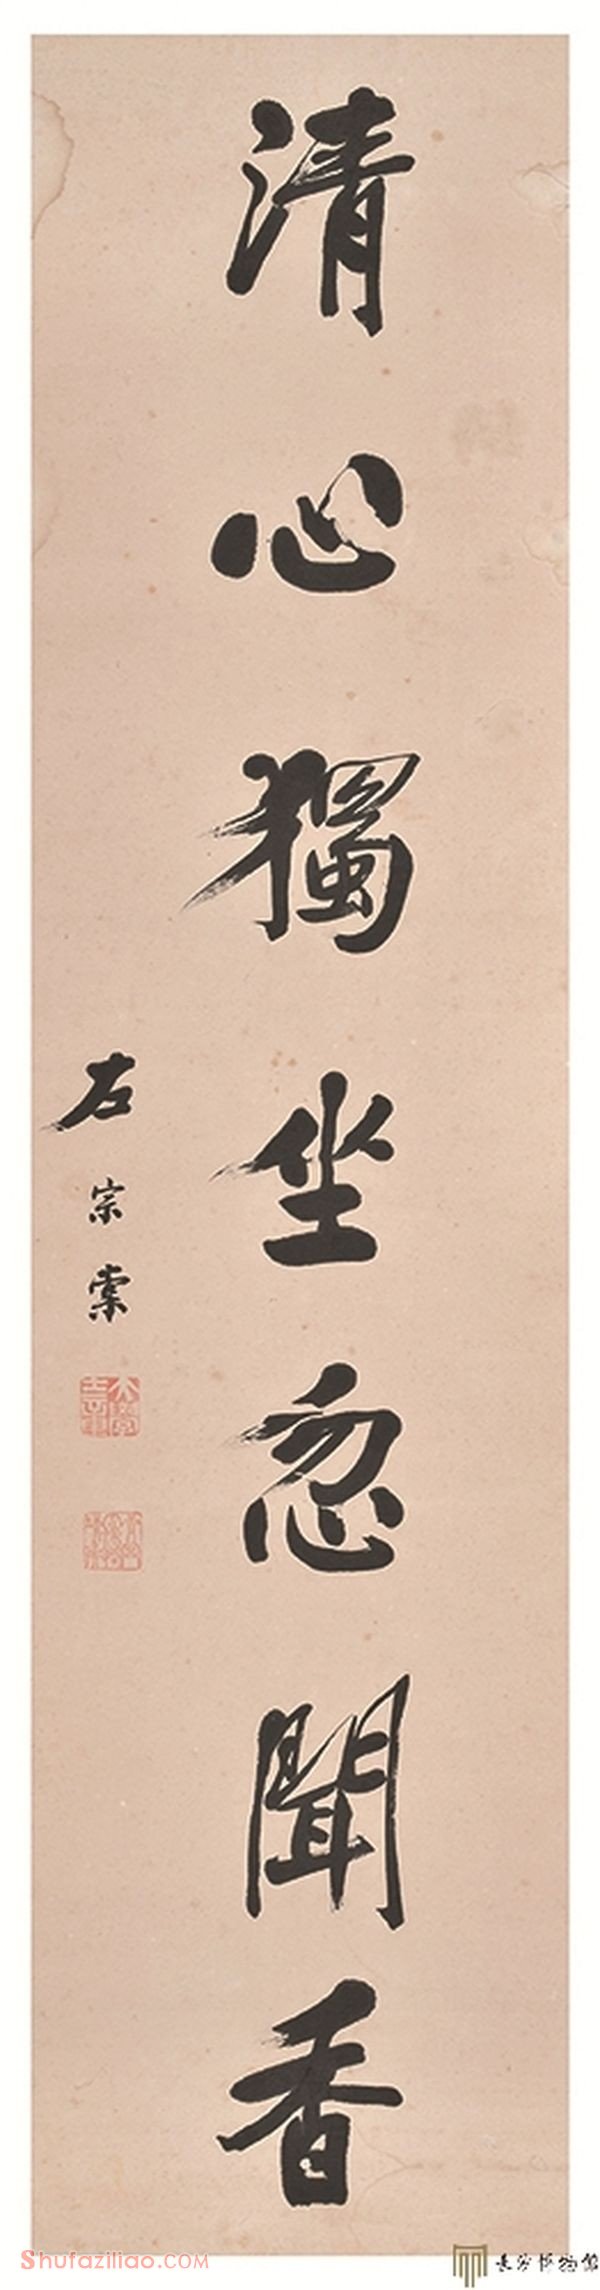 清心獨坐忽聞香
左宗棠
大學士章
Shufaziliao.COM
長沙博物館